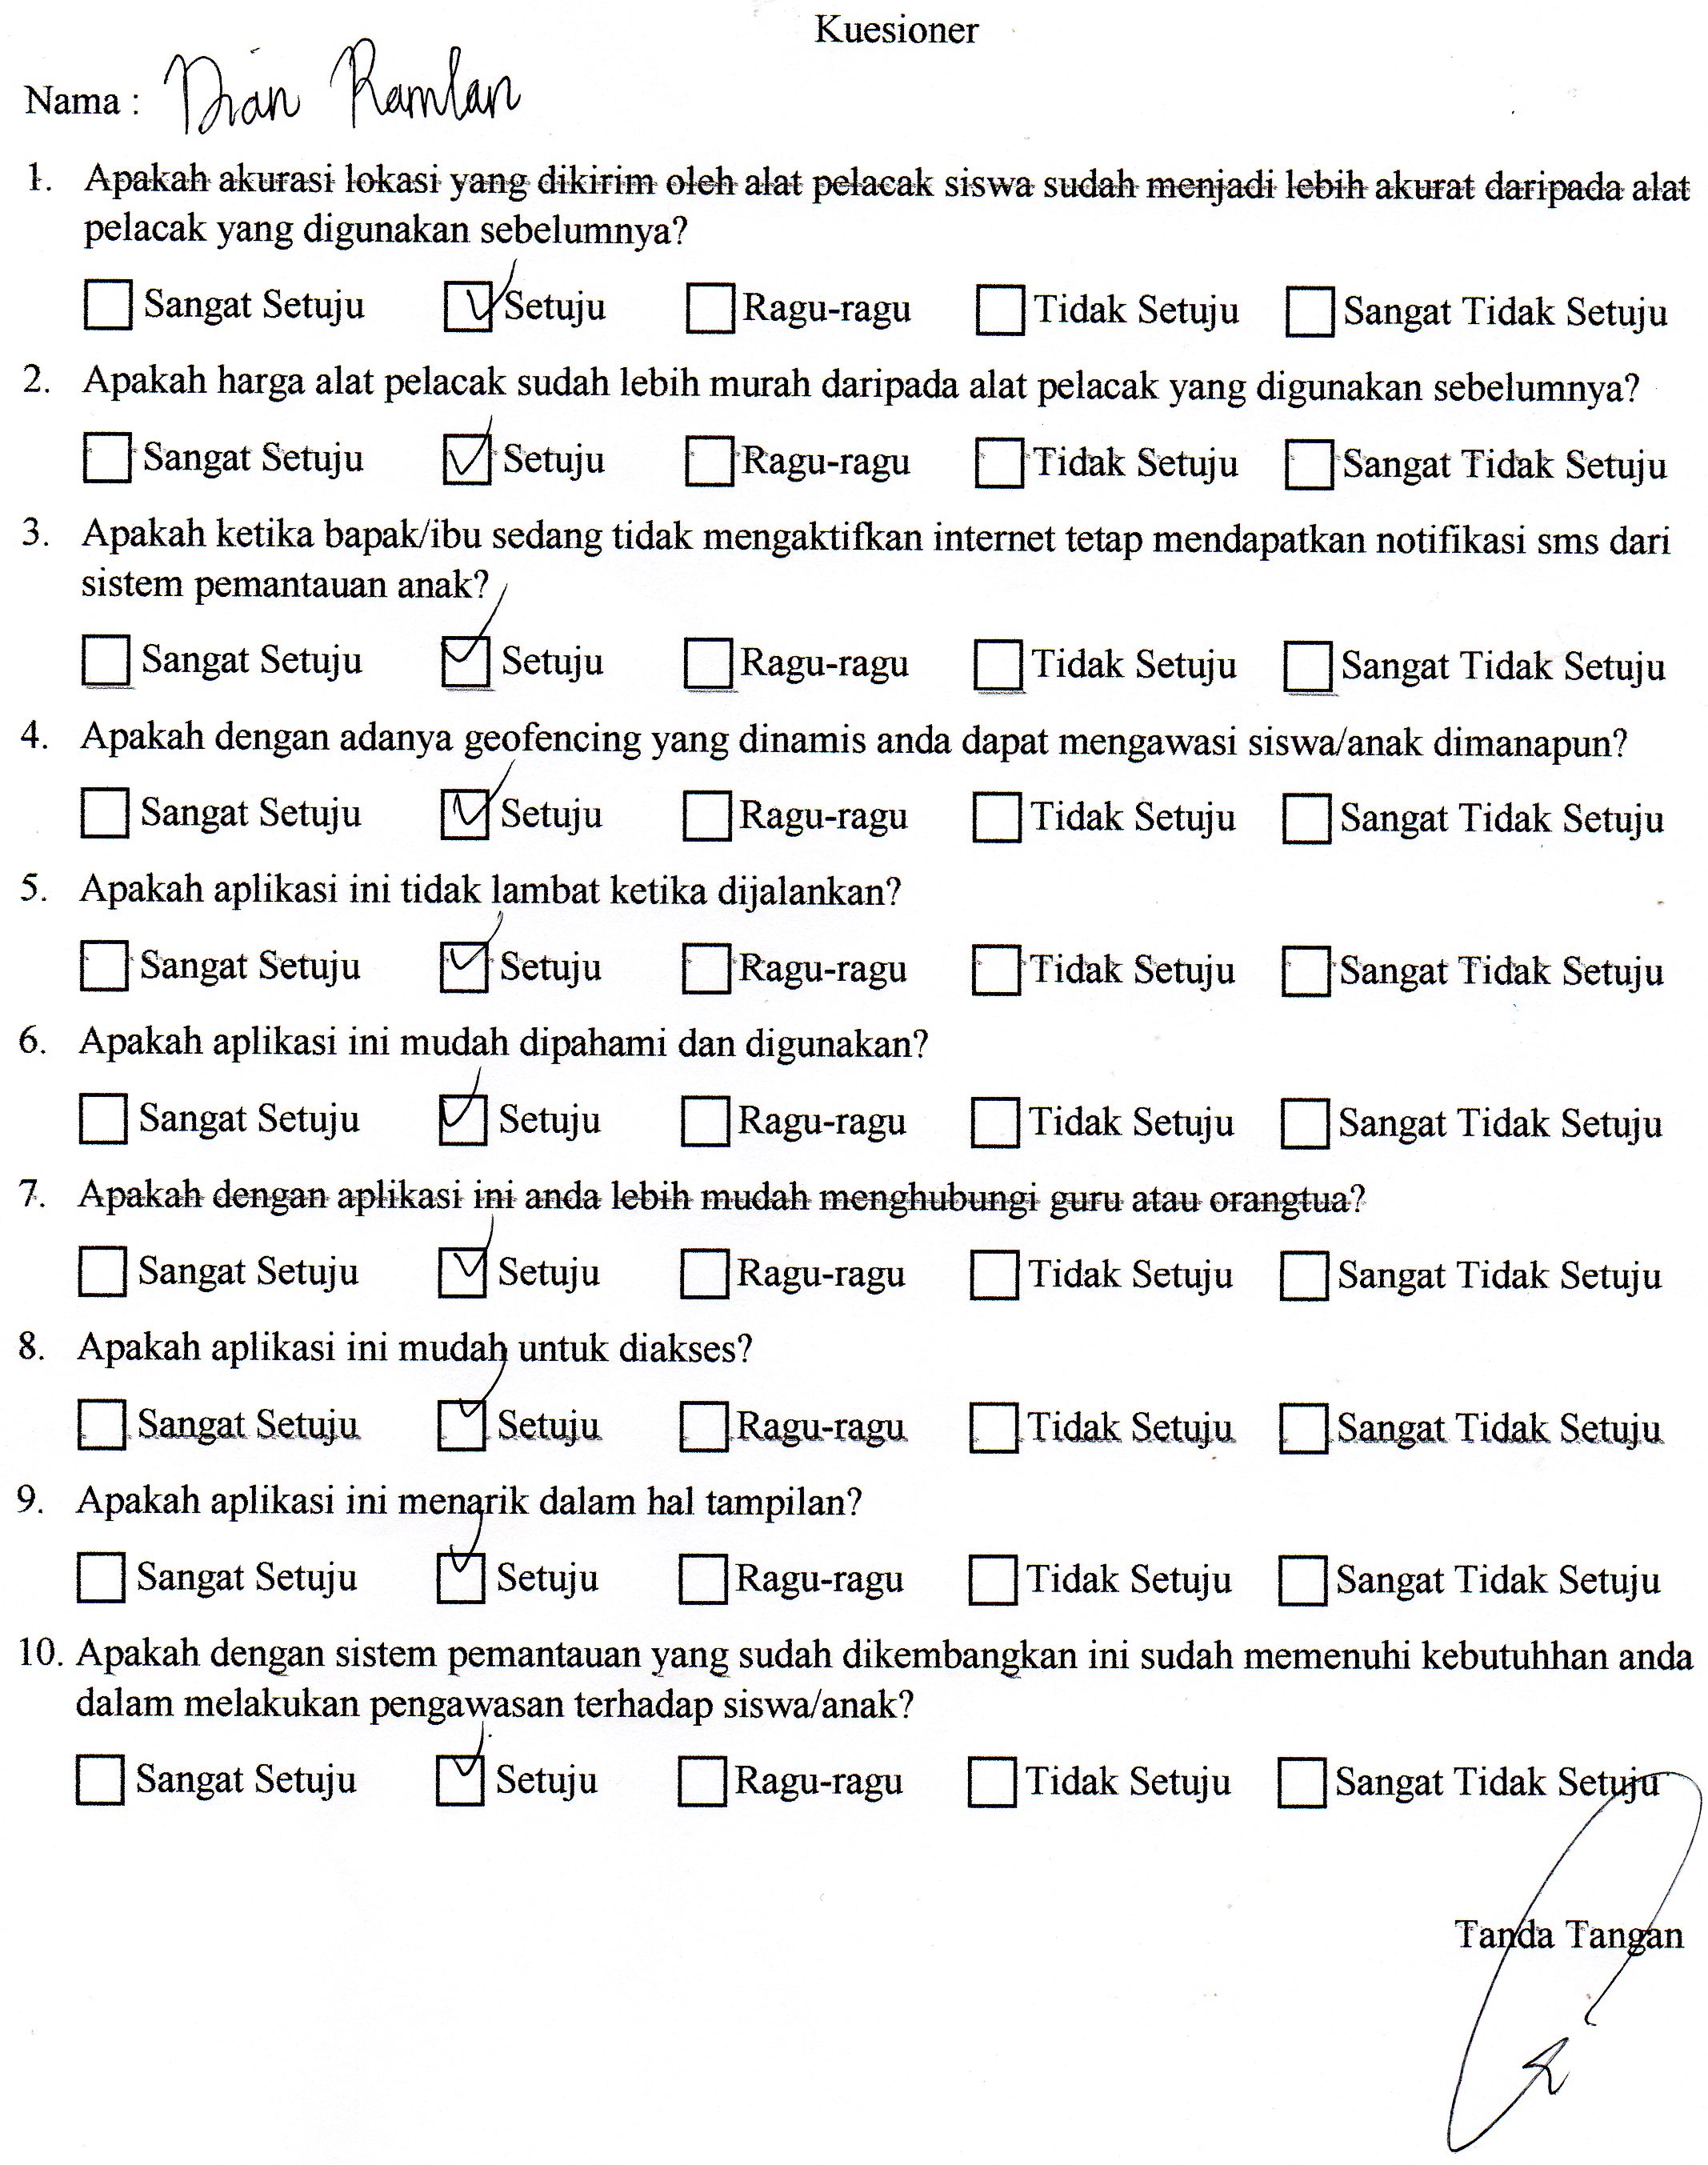 Kuesioner
Nama : Dian Ramlan
1. Apakah akurasi lokasi yang dikirim oleh alat pelacak siswa sudah menjadi lebih akurat daripada alat
pelacak yang digunakan sebelumnya?
Sangat Setuju Setuju Ragu-ragu Tidak Setuju Sangat Tidak Setuju
2. Apakah harga alat pelacak sudah lebih murah daripada alat pelacak yang digunakan sebelumnya?
Sangat Setuju Setuju Ragu-ragu Tidak Setuju Sangat Tidak Setuju
3. Apakah ketika bapak/ibu sedang tidak mengaktifkan internet tetap mendapatkan notifikasi sms dari
sistem pemantauan anak?
Sangat Setuju Setuju Ragu-ragu Tidak Setuju Sangat Tidak Setuju
4. Apakah dengan adanya geofencing yang dinamis anda dapat mengawasi siswa/anak dimanapun?
Sangat Setuju Setuju Ragu-ragu Tidak Setuju Sangat Tidak Setuju
5. Apakah aplikasi ini tidak lambat ketika dijalankan?
Sangat Setuju Setuju Ragu-ragu Tidak Setuju Sangat Tidak Setuju
6. Apakah aplikasi ini mudah dipahami dan digunakan?
Sangat Setuju Setuju Ragu-ragu Tidak Setuju Sangat Tidak Setuju
7. Apakah dengan aplikasi ini anda lebih mudah menghubungi guru atau orangtua?
Sangat Setuju Setuju Ragu-ragu Tidak Setuju Sangat Tidak Setuju
8. Apakah aplikasi ini mudah untuk diakses?
Sangat Setuju Setuju Ragu-ragu Tidak Setuju Sangat Tidak Setuju
9. Apakah aplikasi ini menarik dalam hal tampilan?
Sangat Setuju Setuju Ragu-ragu Tidak Setuju Sangat Tidak Setuju
10. Apakah dengan sistem pemantauan yang sudah dikembangkan ini sudah memenuhi kebutuhhan anda
dalam melakukan pengawasan terhadap siswa/anak?
Sangat Setuju Setuju Ragu-ragu Tidak Setuju Sangat Tidak Setuju
Tanda Tangan